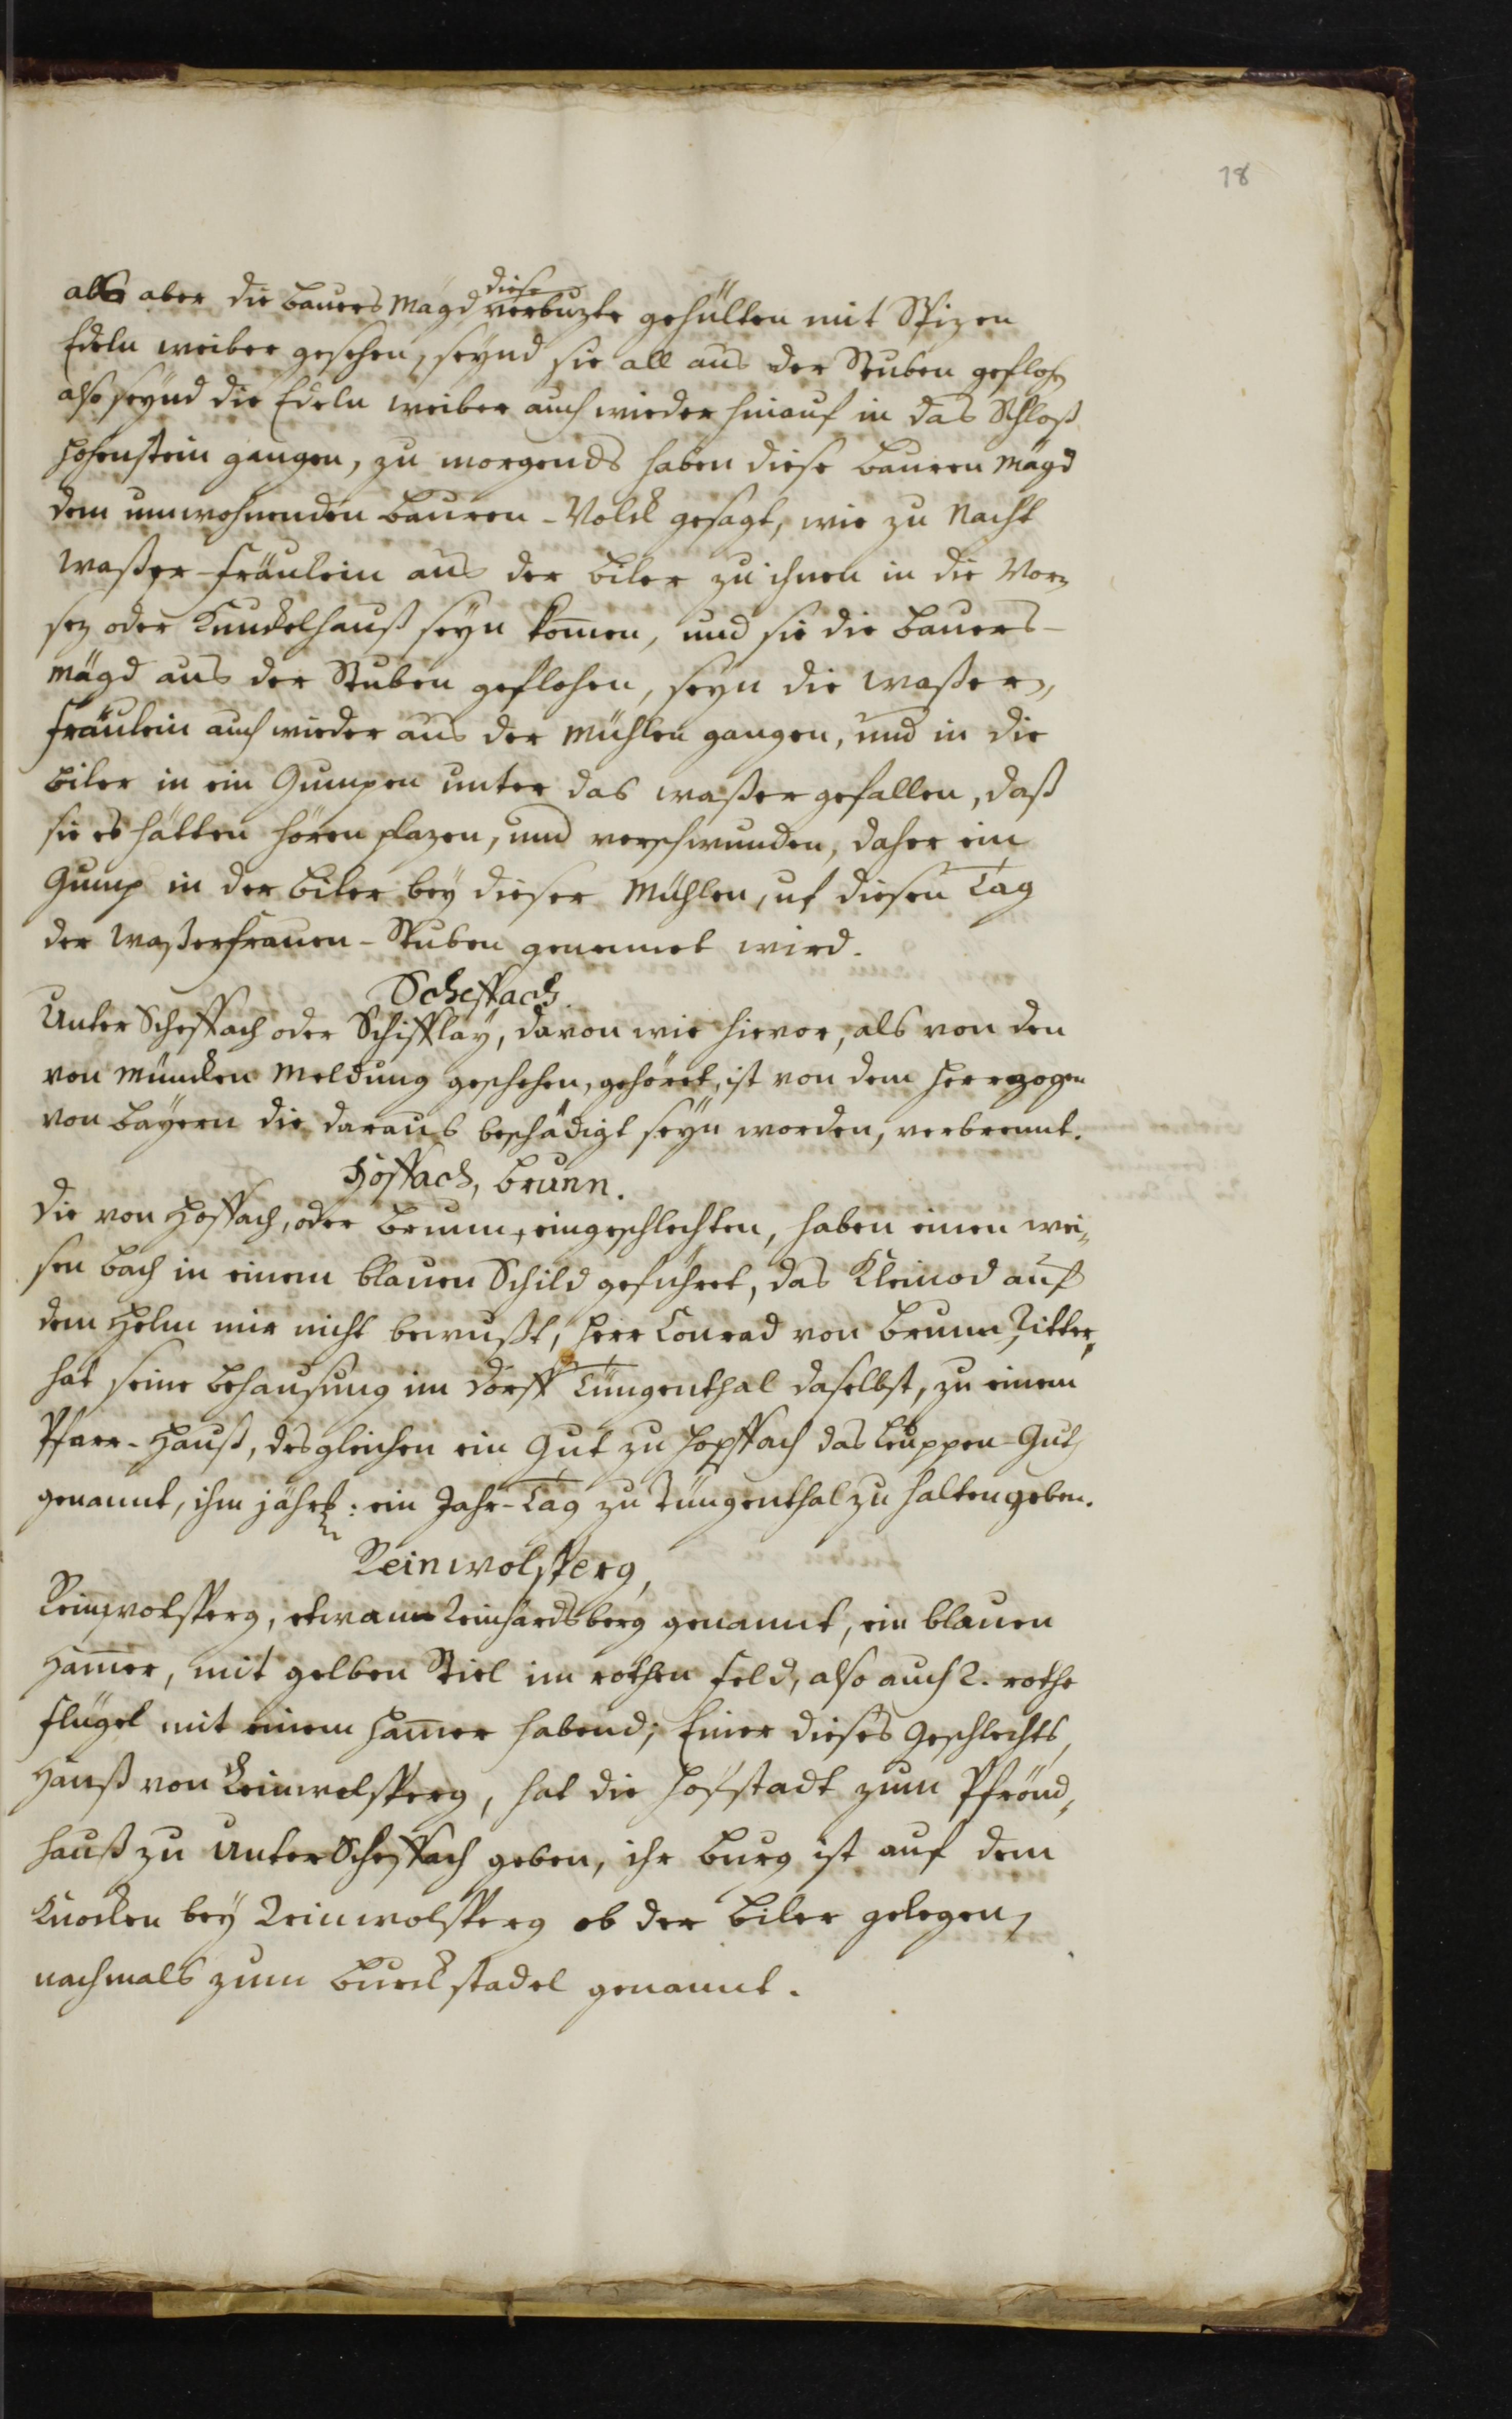 18
als aber die Bauers Mägd diese verbuzte gehülten mit Spizen
Edeln weiber gesehen, seynd sie all aus der Stuben geflohen
also seynd die Edeln weiber auch wieder hinauf in das Schloß
Hohenstein gangen, zu morgends haben diese Bauren Mägd
dem umwohnenden Bauren-Volck gesagt, wie zu Nacht
Waßer-Fräulein aus der Biler zu ihnen in die Vor-
sez oder Kunckelhauß seyn kom̄en, und sie die Bauers-
Mägd aus der Stuben geflohen, seyn die Waßer-
Fräulein auch wieder aus der Mühlen gangen, und in die
Biler in ein Gumpen unter das waßer gefallen, daß
sie es hätten hören plazen, und verschwunden, daher ein
Gump in der Biler bey dieser Mühlen, uf diesen Tag
der Waßerfrauen-Stuben genennet wird.
Scheffach.
Unter Scheffach oder Schifflay, davon wie hievor, als von den
von Müncken Meldung geschehen, gehöret, ist von dem Herrzogen
von Bayern die daraus beschädigt seyn worden, verbrennt.
Hopffach, Brunn.
Die von Hopffach, oder Brunn, eingeschlechten, haben einen wei-
sen Bach in einem blauen Schild geführet, das Kleinod auf
dem Helm mir nicht bewußt, Herr Conrad von Brunn, Ritter,
hat seine Behausung im Dorff Tüngenthal daselbst, zu einem
Pfarr-Hauß, desgleichen ein Gut zu Hopffach das Leuppen-Guth
genannt, ihm jährl: ein Jahr-Tag zu Tüngenthal zu halten geben.
Reinwolsperg,
Reinwolsperg, etwann Reinhardsberg genannt, ein blauen
Ham̄er, mit gelben Stiel im rothen Feld, also auch 2. rothe
Flügel mit einem Ham̄er habend; Einer dieses Geschlechts,
Hanß von Reinwolsperg, hat die Hofstadt zum Pfrönd-
hauß zu Unter Scheffach geben, ihr Burg ist auf dem
Knocken bey Reinwolsperg ob der Biler gelegen,
nachmals zum Burckstadel genannt.